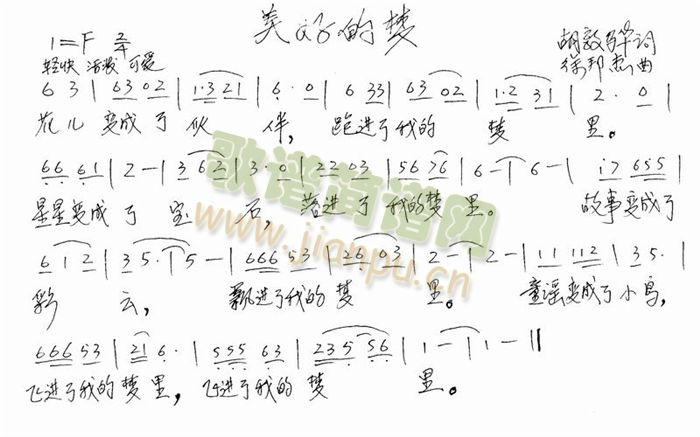 美好的梦
1=F 2/4
轻快 活泼 可爱
胡敦骅词
徐邦杰曲
6 3 | 63 02 | 1·3 21 | 6· 0 | 6 33 | 63 02 | 1·2 31 | 2· 0 |
花儿变成了伙伴，跑进了我的梦里。
66 61 | 2 - | 3 62 | 3· 0 | 22 03 | 56 76 | 6 - | 6 - | i7 655 |
星星变成了宝石，落进了我的梦里。故事变成了
6 1 2 | 3 5· | 5 - | 666 53 | 26 03 | 2 - | 2 - | 11 112 | 3 5· |
彩云，飘进了我的梦里。童谣变成了小鸟，
666 53 | 21 6· | 555 63 | 235 56 | 1 - | 1 - ‖
飞进了我的梦里，飞进了我的梦里。
歌谱简谱网
www.jianpu.cn